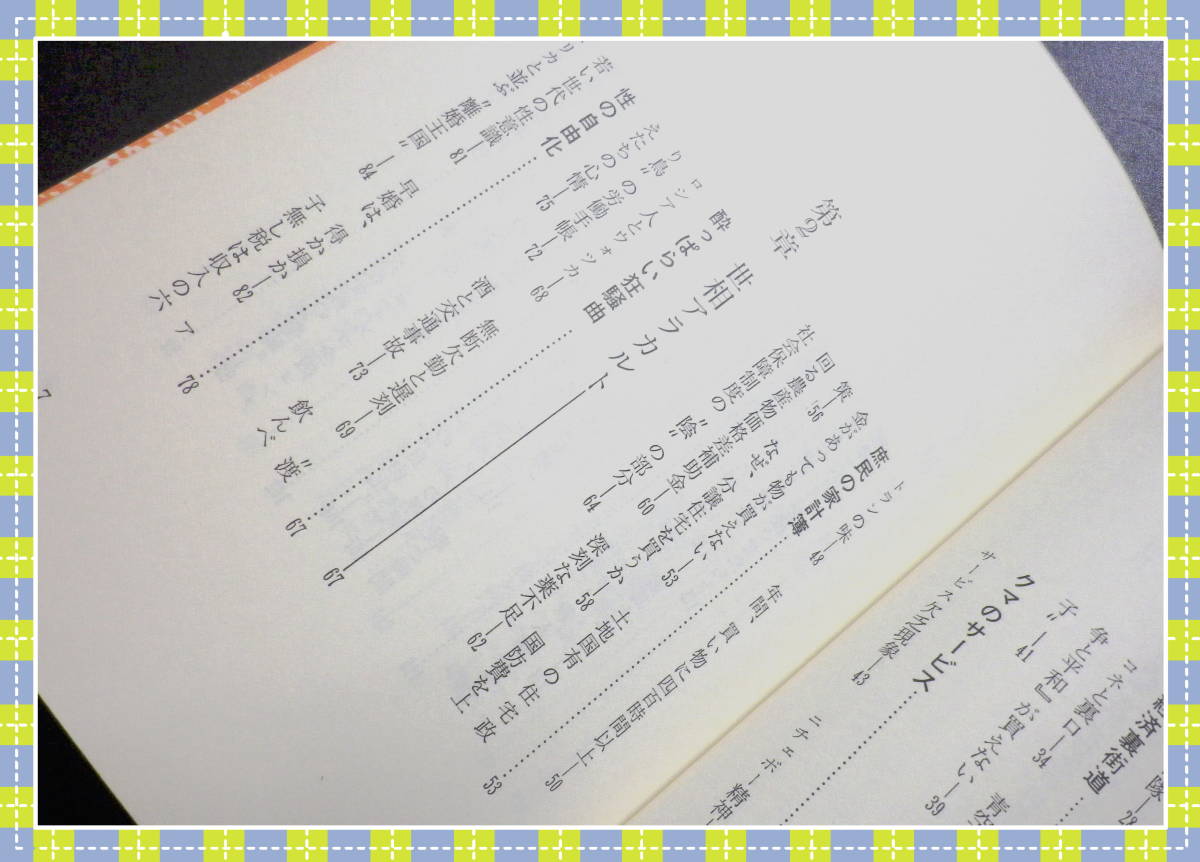 経済裏街道……
隊―28
コネと裏口―34　青空
争と平和』が買えない―39
子”―41
クマのサービス……
サービス欠乏現象―43　ニチェボー精神―
トランの味―48　年間、買い物に四百時間以上―50
庶民の家計簿……53
金があっても物が買えない―53　土地国有の住宅政
策―56　なぜ、分譲住宅を買うか―58　国防費を上
回る農産物価格差補助金―60　深刻な薬不足―62
社会保障制度の“陰”の部分―64
第2章　世相アラカルト――67
酔っぱらい狂騒曲……67
ロシア人とウォツカ―68　無断欠勤と遅刻―69　“渡
り鳥”の労働手帳―72　酒と交通事故―73　飲んべ
えたちの心情―75
性の自由化……78
若い世代の性意識―81　早婚は、得か損か―82　ア
リカと並ぶ“離婚王国”―84　子無し税は収入の六
7